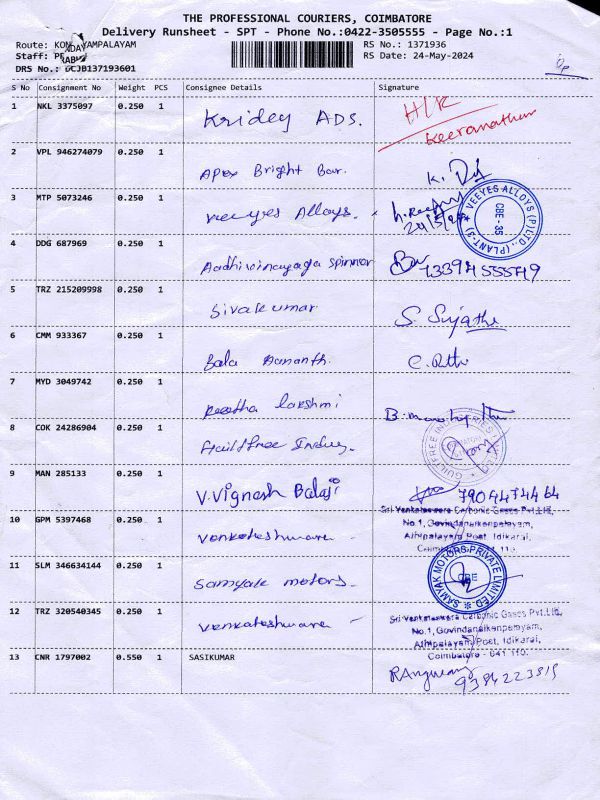 THE PROFESSIONAL COURIERS, COIMBATORE
Delivery Runsheet - SPT - Phone No.:0422-3505555 - Page No.:1
Route: KON YAMPALAYAM
RS No.: 1371936
Staff:
RS Date: 24-May-2024
DRS No.: DCJB137193601
S No Consignment No Weight PCS Consignee Details Signature
1 NKL 3375097 0.250 1 Kridey ADS. H/R
Keeranatham
2 VPL 946274079 0.250 1 Apex Bright Bar. K.
3 MTP 5073246 0.250 1 Veeyes Alloys.
24/5/24
VEEYES ALLOYS (P) LTD., (PLANT-3)
CBE - 35
4 DDG 687969 0.250 1 Aadhivinayaga spinner
5 TRZ 215209998 0.250 1 Sivakumar S. Sujatha
6 CMM 933367 0.250 1 Bala Aananth.
7 MYD 3049742 0.250 1 lakshmi
8 COK 24286904 0.250 1 Guiltfree Indus.
GUILTFREE INDUSTRIES
9 MAN 285133 0.250 1 V.Vignesh Balaji 7904474464
10 GPM 5397468 0.250 1 Venkateshwara -
Sri Venkateswara Carbonic Gases Pvt.Ltd,
No.1, Govindanaikenpalayam,
Athipalayam Post, Idikarai,
Coimbatore - 641 110.
11 SLM 346634144 0.250 1 Samyak motors.
SAMYAK MOTORS PRIVATE LIMITED
CBE
12 TRZ 320540345 0.250 1 Venkateshwara -
Sri Venkateswara Carbonic Gases Pvt.Ltd,
No.1, Govindanaikenpalayam,
Athipalayam Post, Idikarai,
Coimbatore - 641 110.
13 CNR 1797002 0.550 1 SASIKUMAR
9384223819